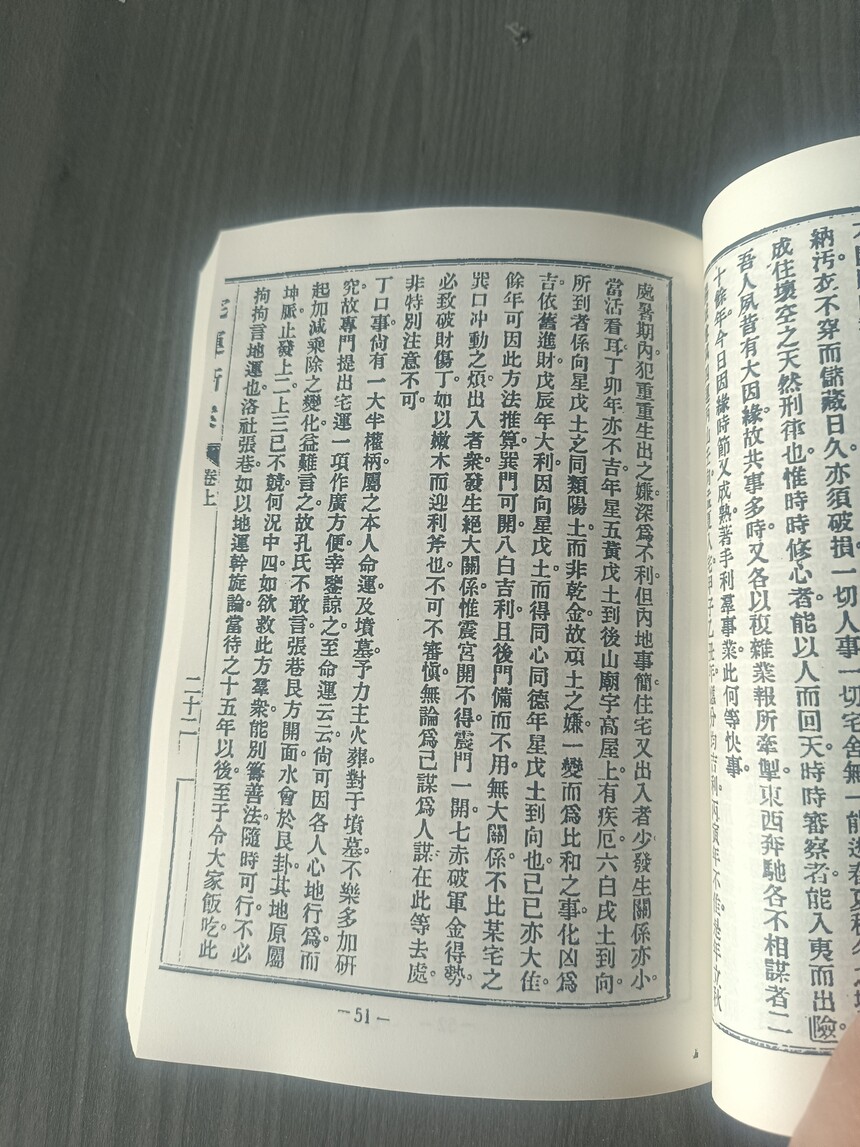 納汚。衣不穿而儲藏日久亦須破損。一切人事一切宅舍無一能
成住壞空之天然刑律也。惟時時修心者能以人而回天。時時審察者。能入夷而出險。
吾人夙昔有大因緣。故共事多時。又各以複雜業報所牽掣。東西奔馳各不相謀者二
十餘年。今日因緣時節又成熟。著手利羣事業。此何等快事。
處暑期內。犯重重生出之嫌。深爲不利。但內地事簡。住宅又出入者少。發生關係亦小。
當活看耳。丁卯年亦不吉。年星五黃戊土到後山廟宇高屋上。有疾厄。六白戌土到向。
所到者係向星戊土之同類陽土。而非乾金。故頑土之嫌一變而爲比和之事。化凶爲
吉。依舊進財。戊辰年大利。因向星戊土而得同心同德年星戊土到向也。己巳亦大佳。
餘年可因此方法推算。巽門可開。八白吉利。且後門備而不用。無大關係。不比某宅之
巽口冲動之煩。出入者衆。發生絕大關係。惟震宮開不得。震門一開七赤破軍金得勢。
必致破財傷丁。如以嫩木而迎利斧也。不可不審愼。無論爲己謀爲人謀。在此等去處。
非特別注意不可。
丁口事尙有一大半權柄屬之本人命運及墳墓。予力主火葬。對于墳墓。不樂多加研
究。故專門提出宅運一項作廣方便。幸鑒諒之。至命運云云。尙可因各人心地行爲而
起加減乘除之變化。益難言之。故孔氏不敢言。張巷艮方開面。水會於艮卦。其地原屬
坤脈。止發上二。上三已不競。何況中四。如欲救此方羣衆。能別籌善法。隨時可行。不必
拘拘言地運也。洛社張巷。如以地運斡旋論。當待之十五年以後。至于令大家飯吃。此
宅運新案
卷上
二十二
—51—